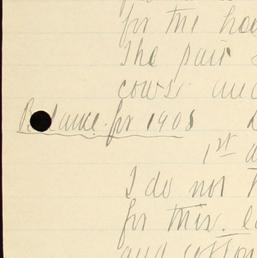 for the
The pair
cows and
Balance for 1908
1st
I do not
for this.
and cotton